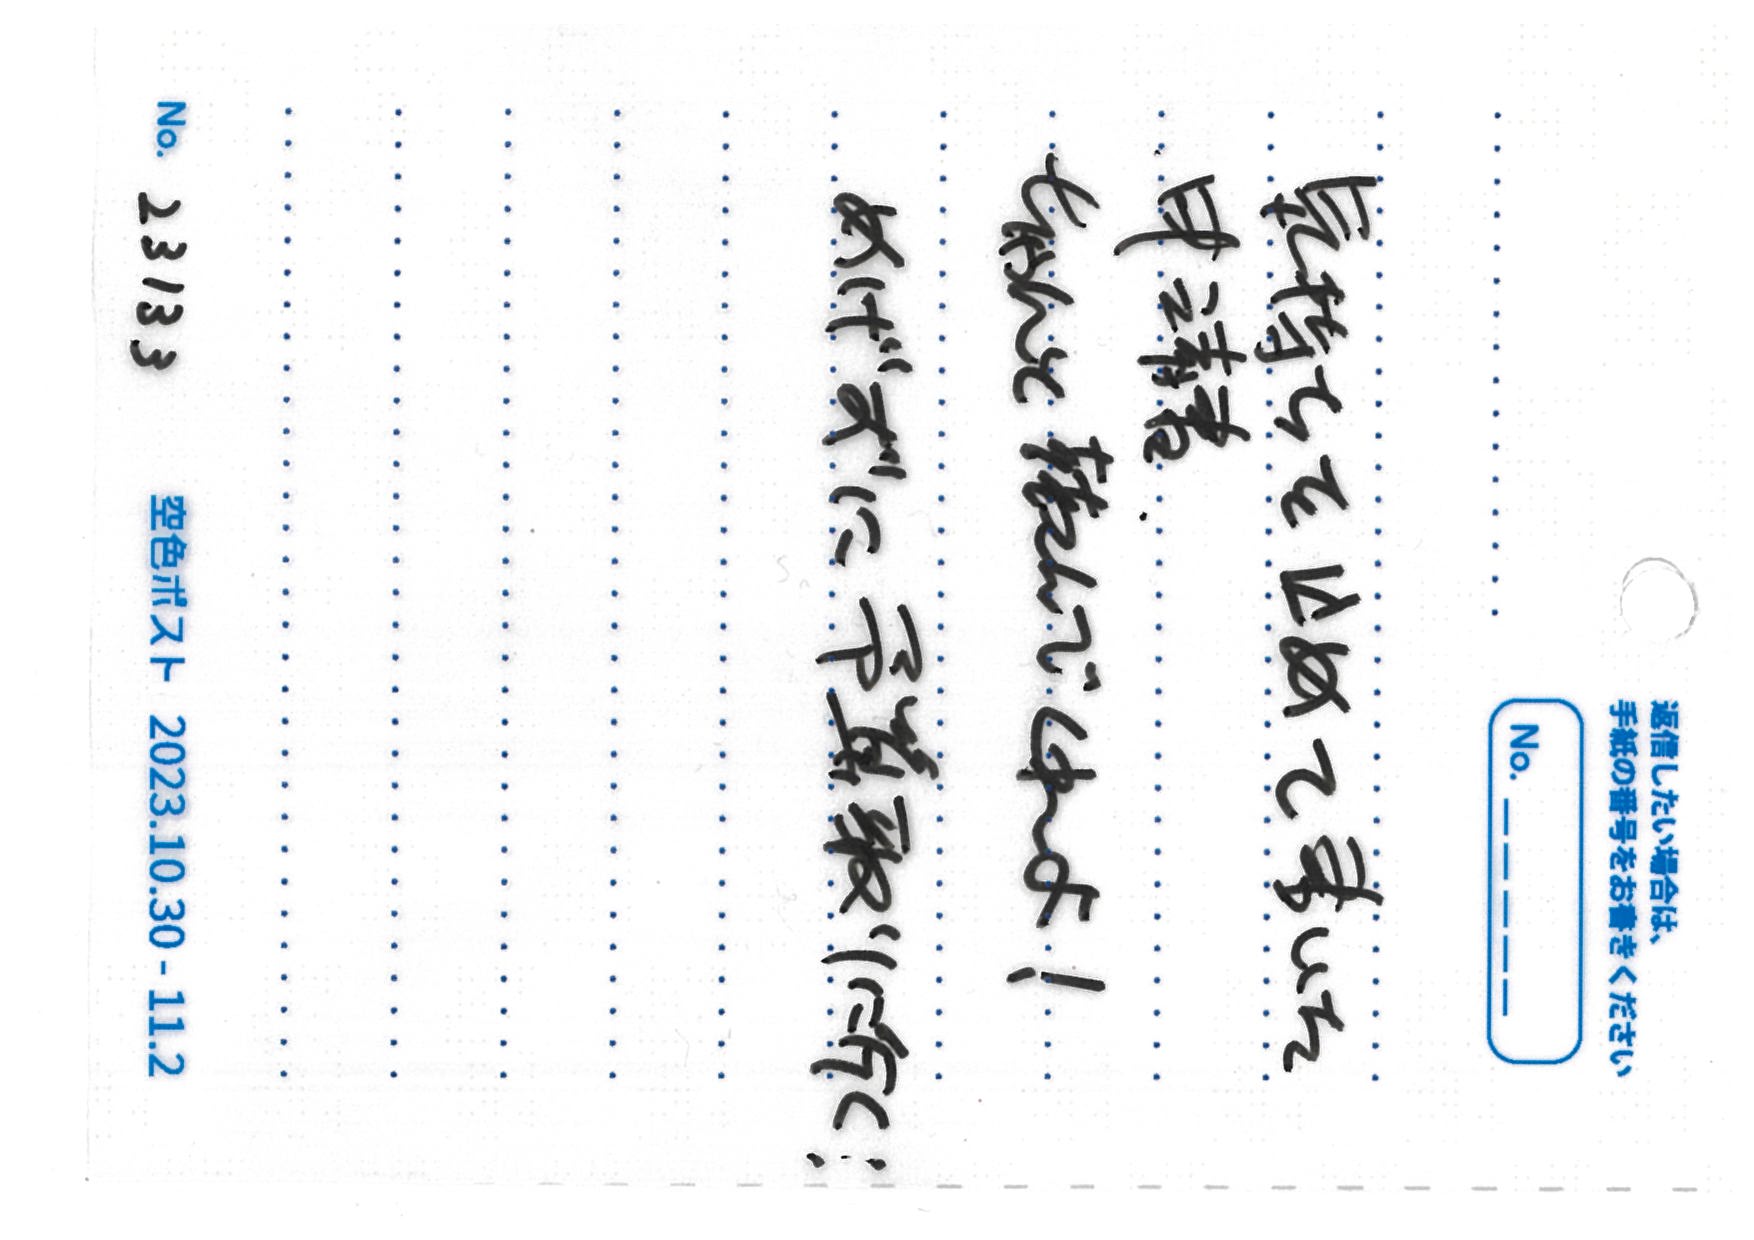 返信したい場合は、
手紙の番号をお書きください
No. _ _ _ _ _
気持ちを止めて書いた
申請書.
ちゃんと読んでくれよ!
めげずに予算取りに行く!
No. 23133
空色ポスト 2023.10.30 - 11.2